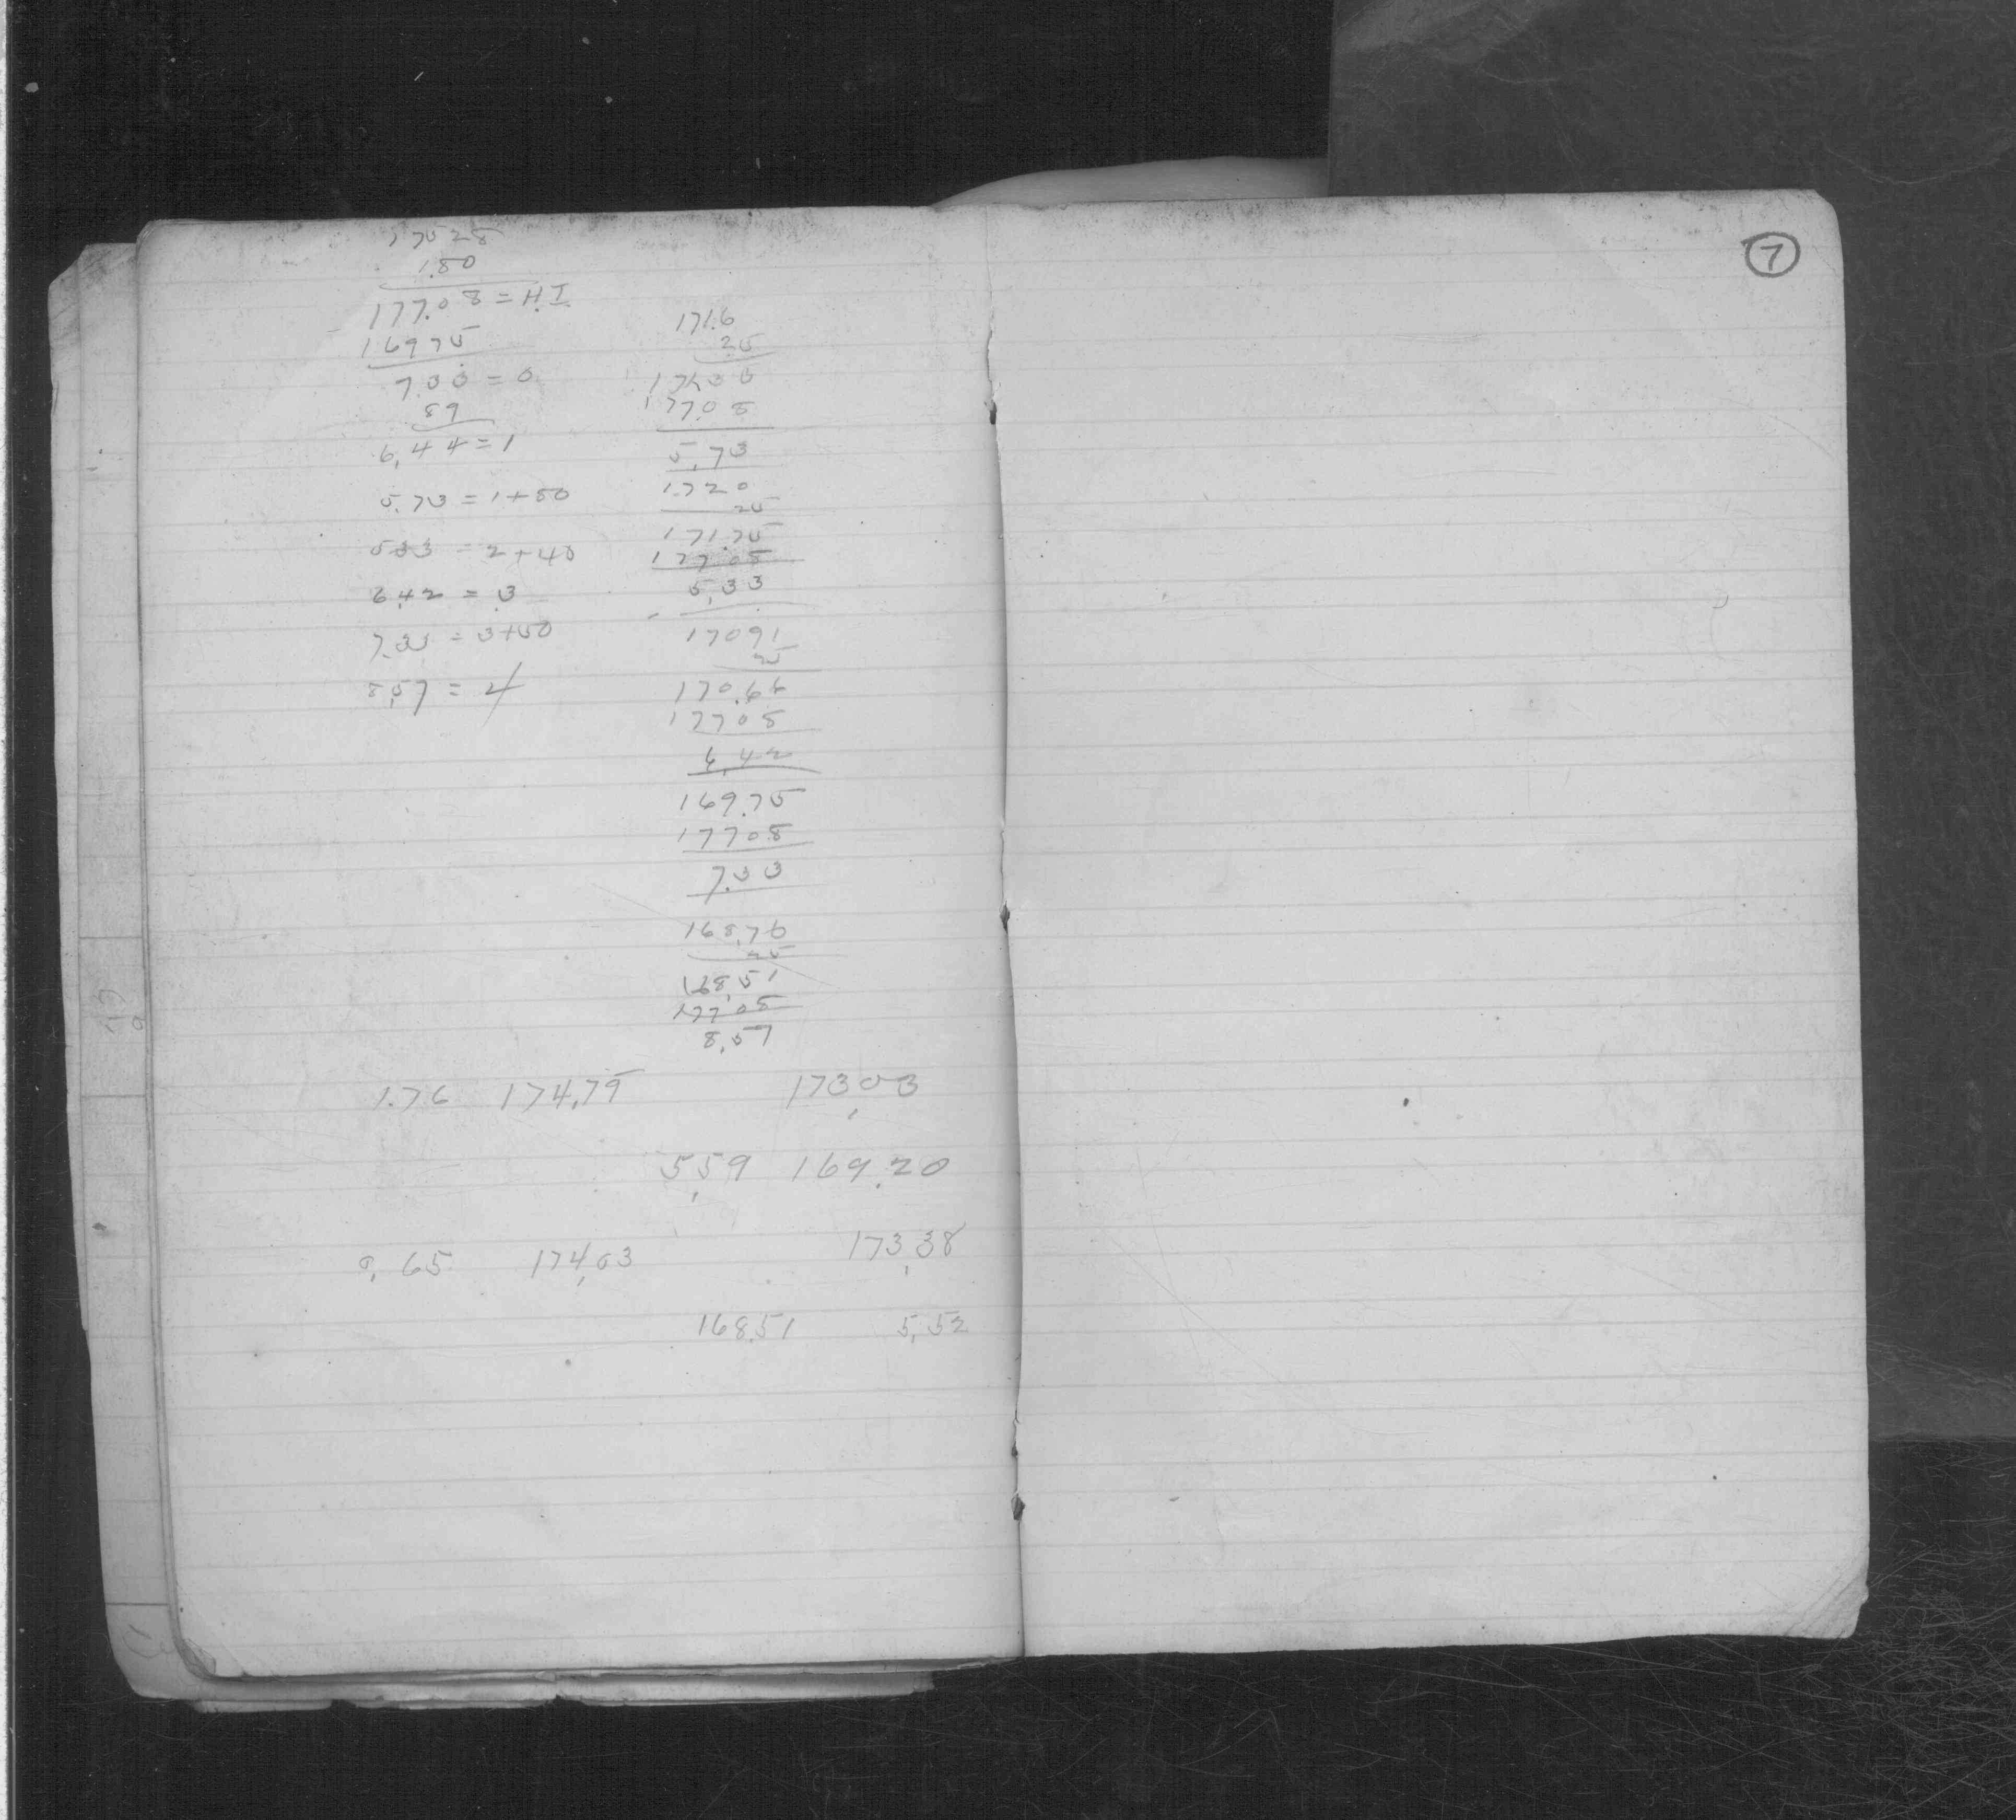 175 28
1.80
177.08 = H.I.
169 75
7.33 = 0
89
6.44 = 1
5.73 = 1+50
533 = 2+40
6.42 = 3
7.33 = 3+50
8.57 = 4
171.6
25
171.35
177.08
5.73
1720
25
171.75
177.08
5.33
17091
25
170.66
17708
6.42
169.75
17708
7.33
168.76
25
168.51
177 08
8.57
1.76 174.79 173.03
5.59 169.20
0.65 174.03 173.38
168.51 5.52
7